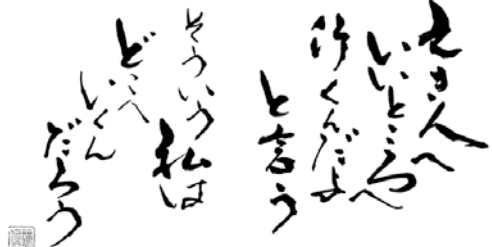 亡き人へ
いいところへ
行くんだよ
と言う
そういう私は
どこへ
いくん
だろう